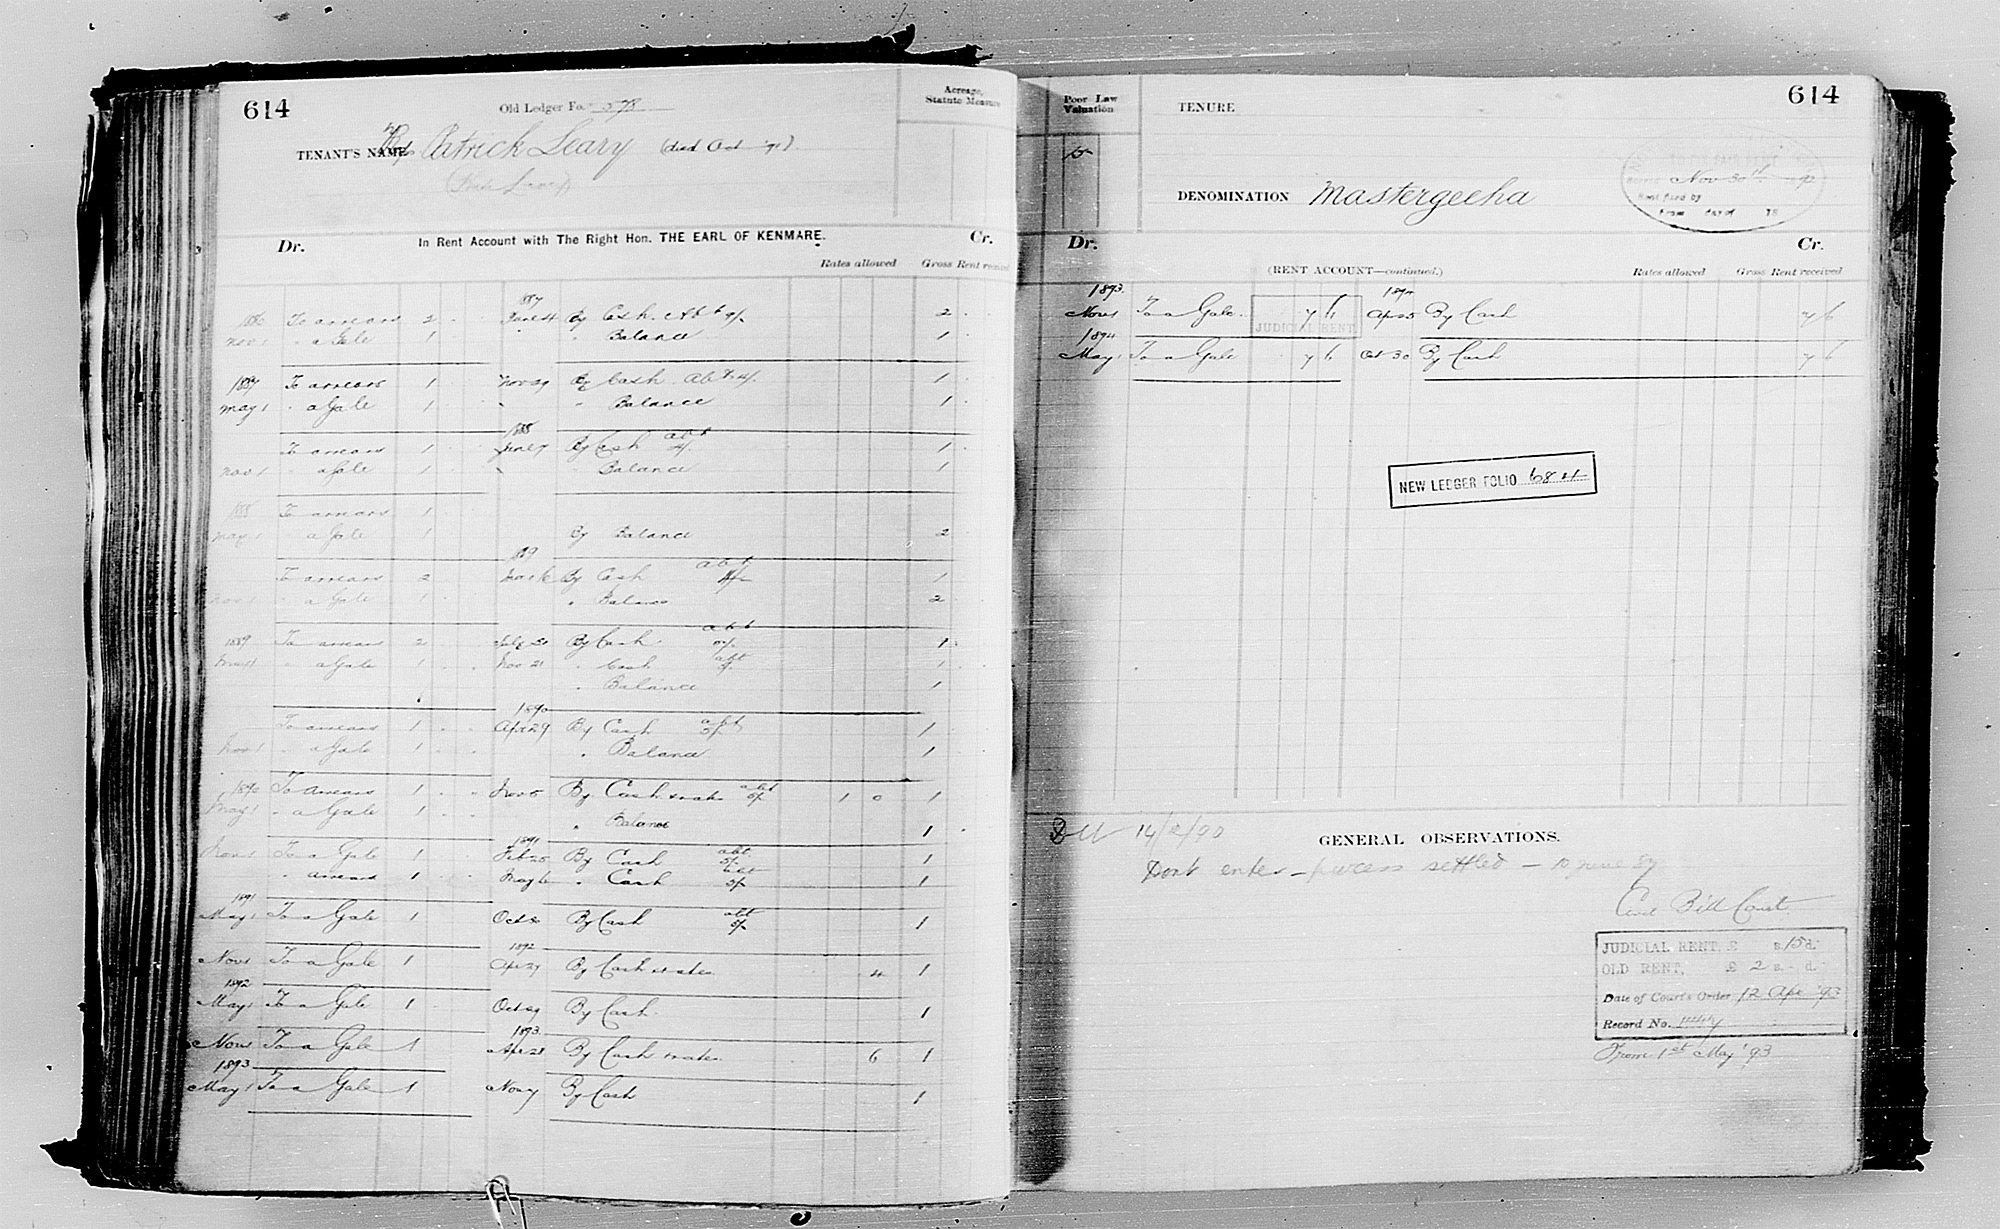 614
Old Ledger Fo. 578
Acreage, Statute Measure
TENANT'S NAME Reps Patrick Leary (died Oct '91)
Dr. In Rent Account with The Right Hon. THE EARL OF KENMARE. Cr.
Rates allowed Gross Rent received
1887
1886 To arrears 2 June 4 By Cash Abt 2
Nov 1 " a Gale 1 " Balance 1
1887 To arrears 1 Nov 29 By Cash Abt 4/. 1
May 1 " a Gale 1 " Balance 1
1888
To arrears 1 June 7 By Cash abt 4/. 1
Nov 1 " a Gale 1 " Balance 1
1888 To arrears 1
May 1 " a Gale 1 By Balance 2
1889
To arrears 2 By Cash abt 1
Nov 1 " a Gale 1 " Balance 2
1889 To arrears 2 July 30 By Cash abt 1
May 1 " a Gale 1 Nov 21 " Cash abt 1
" Balance 1
1890
To arrears 1 Apr 29 By Cash abt 5/. 1
Nov 1 " a Gale 1 " Balance 1
1890 To arrears 1 Nov 5 By Cash & rates abt 5/. 1 0 1
May 1 " a Gale 1 " Balance 1
1891
Nov 1 To a Gale 1 Feb 25 By Cash abt 5/. 1
" arrears 1 May 6 " Cash abt 5/. 1
1891
May 1 To a Gale 1 Oct 8 By Cash abt 5/. 1
1892
Nov 1 To a Gale 1 Apr 27 By Cash & rates 4 1
1892
May 1 To a Gale 1 Oct 29 By Cash 1
1893
Nov 1 To a Gale 1 Apr 28 By Cash & rates 6 1
1893
May 1 To a Gale 1 Nov 7 By Cash 1
Poor Law Valuation
TENURE
614
15
TO FIX FAIR RENT
Nov 30th 1892
Rent fixed by
From day of 18
DENOMINATION Mastergeeha
Dr. Cr.
(RENT ACCOUNT—continued.) Rates allowed Gross Rent received
1893 1894
Nov 1 To a Gale 7 6 Apr 25 By Cash 7 6
JUDICIAL RENT
1894
May 1 To a Gale 7 6 Oct 30 By Cash 7 6
NEW LEDGER FOLIO 684
14/2/90
GENERAL OBSERVATIONS.
Dont enter – process settled –
Civil Bill Court
JUDICIAL RENT, £ s. 15 d.
OLD RENT, £ 2 s. - d.
Date of Court's Order 12 Apr '93
Record No.
From 1st May '93